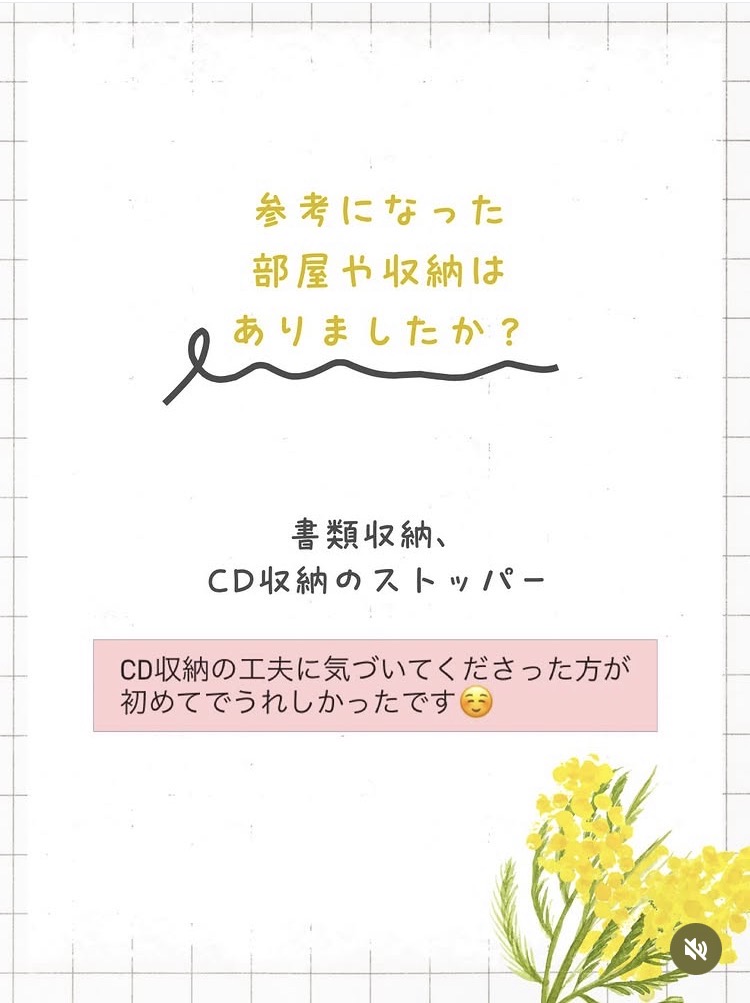 参考になった
部屋や収納は
ありましたか？
書類収納、
CD収納のストッパー
CD収納の工夫に気づいてくださった方が
初めてでうれしかったです☺️